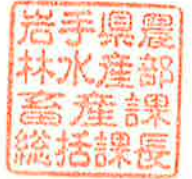 岩手県農
林水産部
畜産課
総括課長